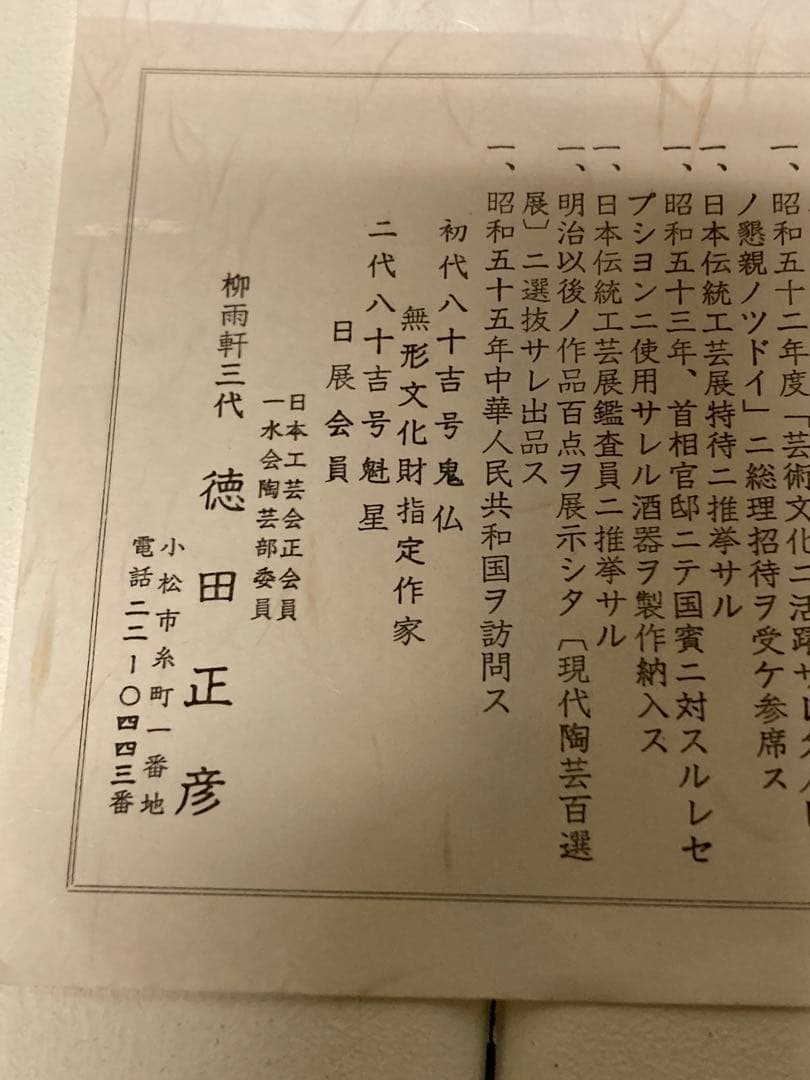 一、昭和五十二年度「芸術文化ニ活躍サレタ人
ノ懇親ノツドイ」ニ総理招待ヲ受ケ参席ス
一、日本伝統工芸展特待ニ推挙サル
一、昭和五十三年、首相官邸ニテ国賓ニ対スルレセ
プションニ使用サレル酒器ヲ製作納入ス
一、日本伝統工芸展鑑査員ニ推挙サル
一、明治以後ノ作品百点ヲ展示シタ〔現代陶芸百選
展〕ニ選抜サレ出品ス
一、昭和五十五年中華人民共和国ヲ訪問ス
初代八十吉号鬼仏
無形文化財指定作家
二代八十吉号魁星
日展会員
日本工芸会正会員
一水会陶芸部委員
柳雨軒三代 徳田正彦
小松市糸町一番地
電話二二ー〇四四三番